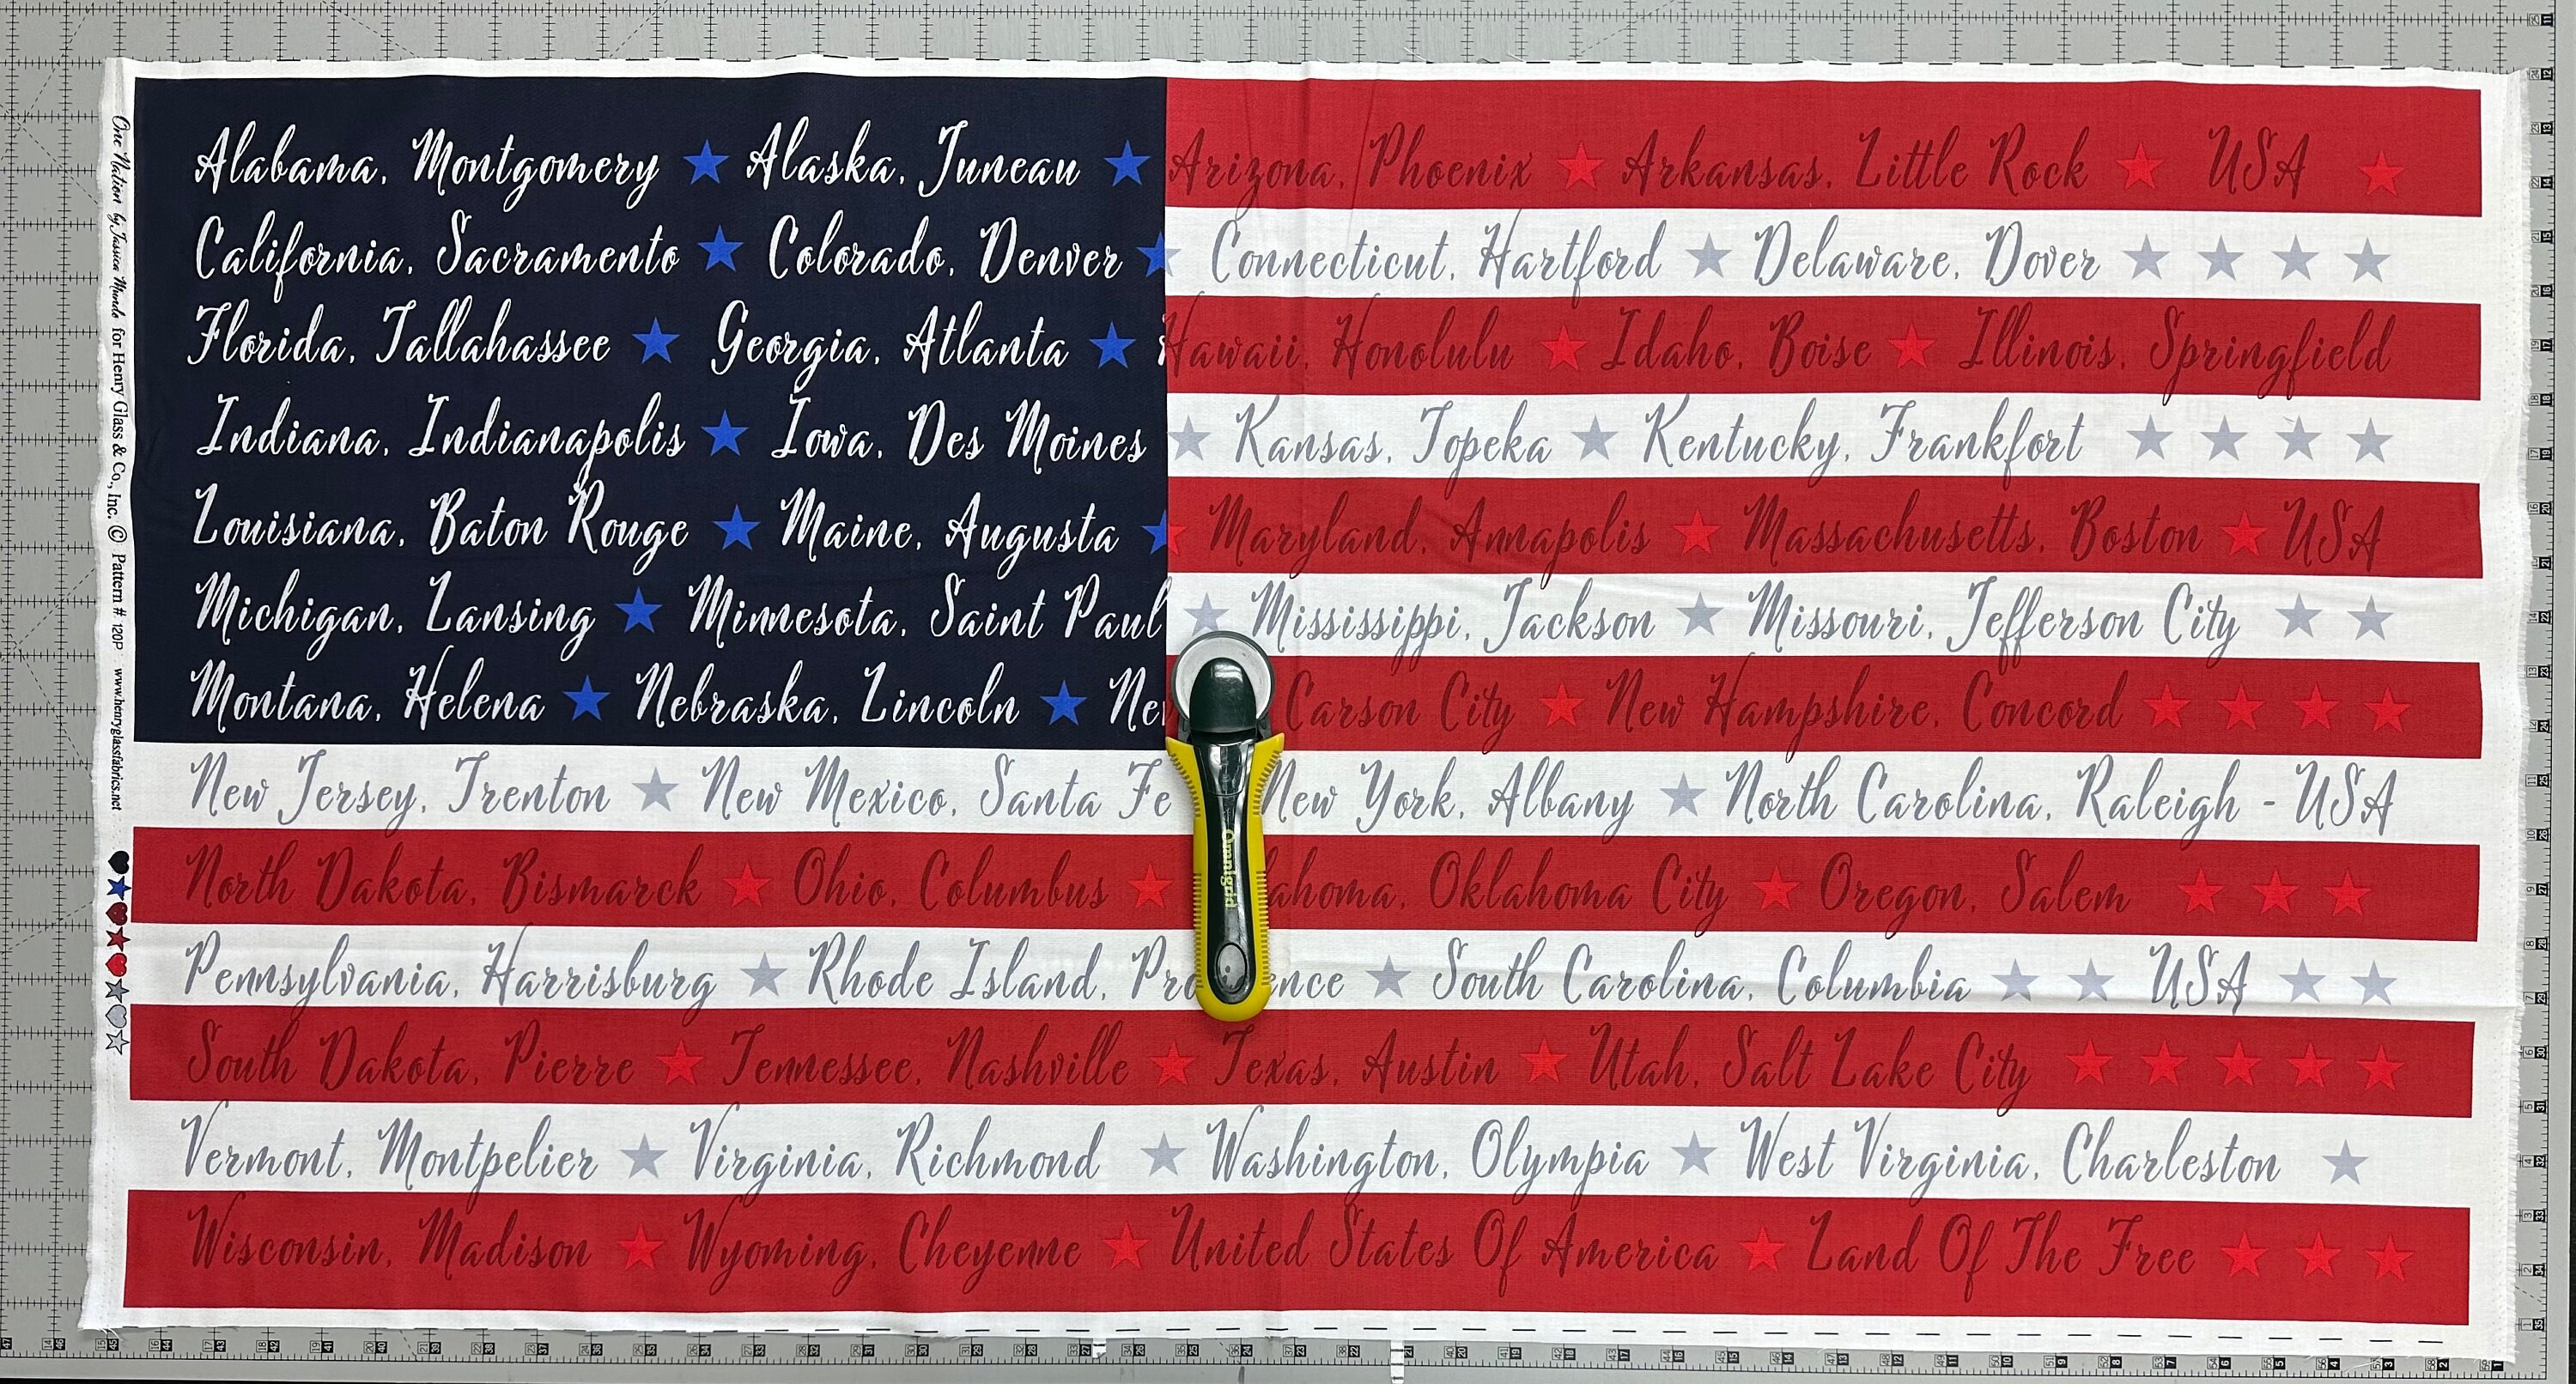 Alabama, Montgomery ★ Alaska, Juneau ★ Arizona, Phoenix ★ Arkansas, Little Rock ★ USA ★
California, Sacramento ★ Colorado, Denver ★ Connecticut, Hartford ★ Delaware, Dover ★ ★ ★ ★
Florida, Tallahassee ★ Georgia, Atlanta ★ Hawaii, Honolulu ★ Idaho, Boise ★ Illinois, Springfield
Indiana, Indianapolis ★ Iowa, Des Moines ★ Kansas, Topeka ★ Kentucky, Frankfort ★ ★ ★ ★
Louisiana, Baton Rouge ★ Maine, Augusta ★ Maryland, Annapolis ★ Massachusetts, Boston ★ USA
Michigan, Lansing ★ Minnesota, Saint Paul ★ Mississippi, Jackson ★ Missouri, Jefferson City ★ ★
Montana, Helena ★ Nebraska, Lincoln ★ Ne Carson City ★ New Hampshire, Concord ★ ★ ★ ★
New Jersey, Trenton ★ New Mexico, Santa Fe New York, Albany ★ North Carolina, Raleigh - USA
North Dakota, Bismarck ★ Ohio, Columbus ★ lahoma, Oklahoma City ★ Oregon, Salem ★ ★ ★
Pennsylvania, Harrisburg ★ Rhode Island, Pro ence ★ South Carolina, Columbia ★ ★ USA ★ ★
South Dakota, Pierre ★ Tennessee, Nashville ★ Texas, Austin ★ Utah, Salt Lake City ★ ★ ★ ★ ★
Vermont, Montpelier ★ Virginia, Richmond ★ Washington, Olympia ★ West Virginia, Charleston ★
Wisconsin, Madison ★ Wyoming, Cheyenne ★ United States Of America ★ Land Of The Free ★ ★ ★
One Nation by Jessica Mundo for Henry Glass & Co., Inc. © Pattern # 120P www.henryglassfabrics.net
Omnigrid